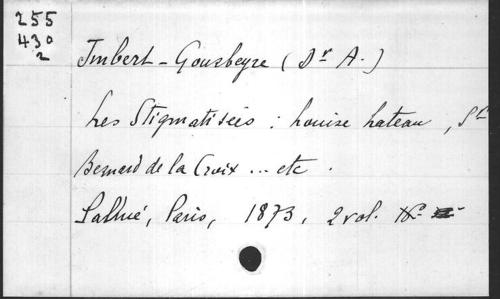 255
430
2
Imbert-Gourbeyre (Dr A.)
Les Stigmatisées : Louise Lateau, St
Bernard de la Croix ... etc.
Palmé, Paris, 1873, 2 vol.